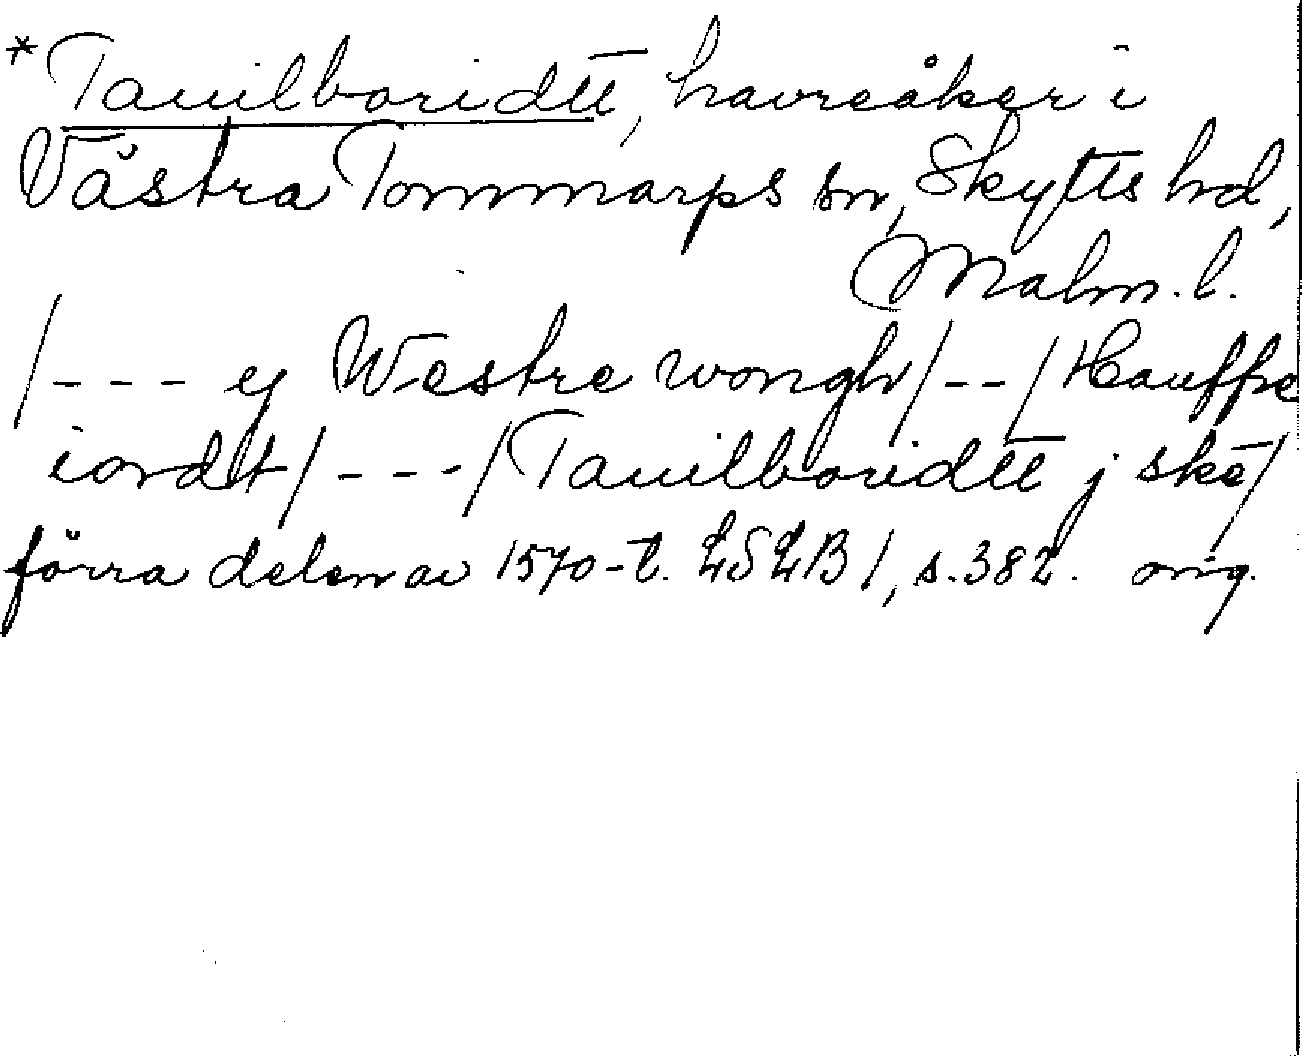 *Tauilboridtt, havreåker i
Västra Tommarps sn, Skytts hd,
Malm. l.
/--- ej Westre wongh/--/Hauffre
iordt/---/Tauilboridtt j ske/
förra delen av 1570-t. LSLB 1, s. 382. orig.